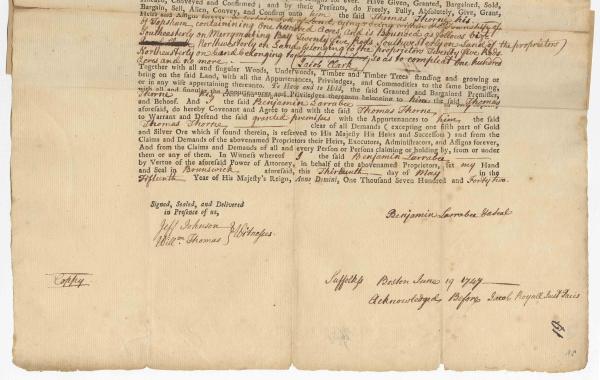 Conveyed and Confirmed; and by these Presents, do Freely, Fully, Absolutely, Give, Grant,
Bargain, Sell, Alien, Convey, and Confirm unto him the said Thomas Thorne, his
Heirs and Assigns forever
of Topsham, containing one hundred Acres, and is Bounded as follows viz.
Southeasterly on Merrymeeting Bay Twenty five Rods Southwesterly on Land of the proprietors
Northeasterly on Land belonging to the
Acres and no more. Jacob Clark so as to compleat one hundred
Together with all and singular Woods, Underwoods, Timber and Timber Trees standing and growing or
being on the said Land, with all the Appurtenances, Priviledges, and Commodities to the same belonging,
or in any wise appertaining thereunto. To Have and to Hold, the said Granted and Bargained Premisses,
with all and singular the Appurtenances and Priviledges thereunto belonging to him the said Thomas
Thorne his
and Behoof. And I the said Benjamin Larrabee
aforesaid, do hereby Covenant and Agree to and with the said Thomas Thorne,
to Warrant and Defend the said granted premisses with the Appurtenances to him, the said
Thomas Thorne clear of all Demands (excepting one fifth part of Gold
and Silver Ore which if found therein, is reserved to His Majesty His Heirs and Successors) and from the
Claims and Demands of the abovenamed Proprietors their Heirs, Executors, Administrators, and Assigns forever,
And from the Claims and Demands of all and every Person or Persons claiming or holding by, from or under
them or any of them. In Witness whereof I the said Benjamin Larrabee
by Vertue of the aforesaid Power of Attorney, in behalf of the abovenamed Proprietors, set my Hand
and Seal in Brunswick aforesaid, this Thirteenth day of May in the
Fifteenth Year of His Majesty's Reign, Anno Domini, One Thousand Seven Hundred and Forty two.
Signed, Sealed, and Delivered
in Presence of us,
Jeff Johnson
Willm Thomas } Witnesses
Benjamin Larrabee & a Seal
Coppy
Suffolk ss Boston June 19 1747
Acknowledged Before Jacob Royall Just Pacis